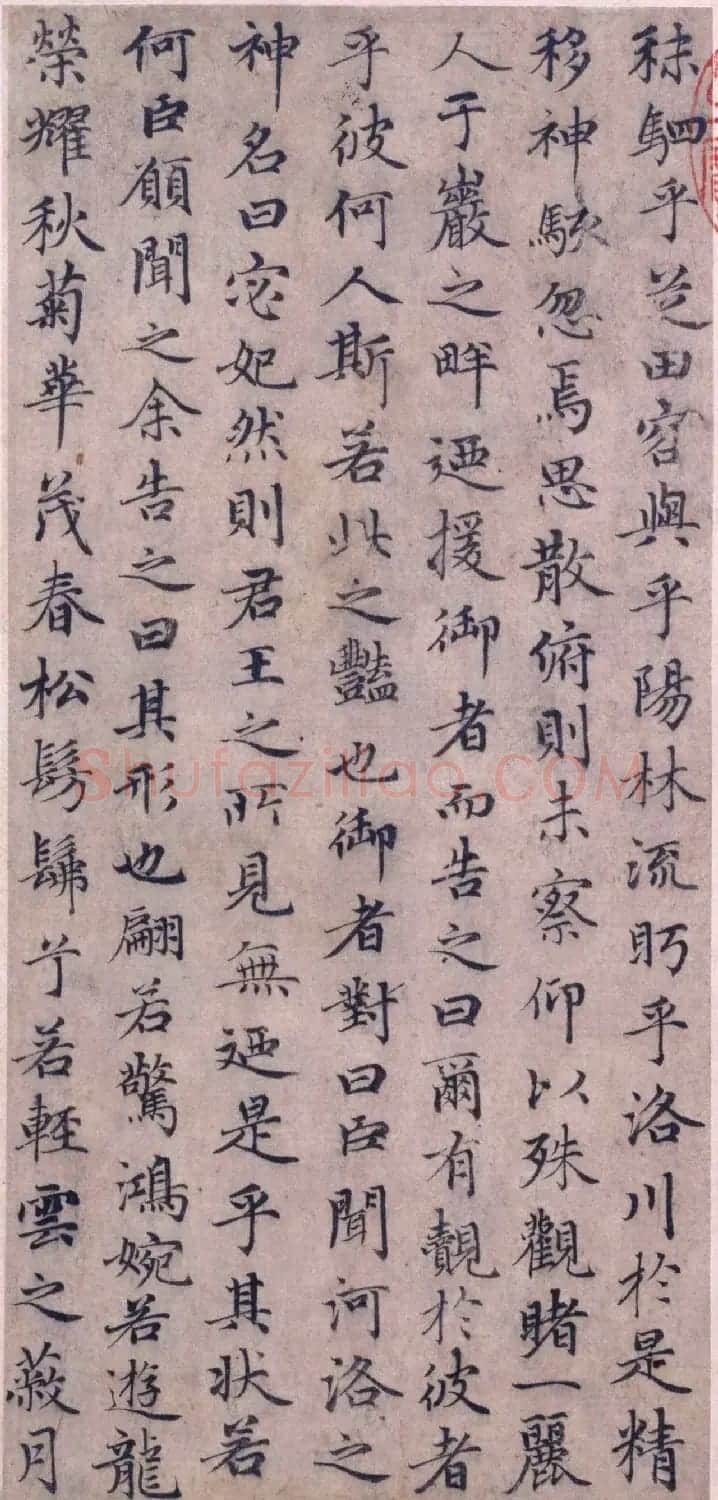 秣駟乎芝田容與乎陽林流眄乎洛川於是精
移神駭忽焉思散俯則未察仰以殊觀睹一麗
人于巖之畔迺援御者而告之曰爾有覿於彼者
乎彼何人斯若此之豔也御者對曰臣聞河洛之
神名曰宓妃然則君王之所見無迺是乎其狀若
何臣願聞之余告之曰其形也翩若驚鴻婉若遊龍
榮耀秋菊華茂春松髣髴兮若輕雲之蔽月
Shufaziliao.COM